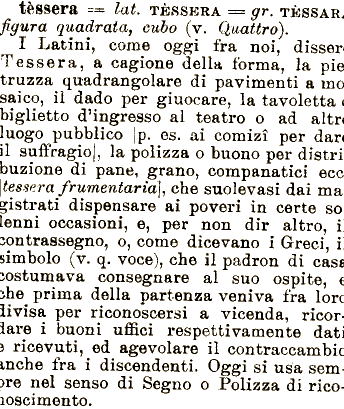 tèssera = lat. TÈSSERA = gr. TÈSSARA
figura quadrata, cubo (v. Quattro).
I Latini, come oggi fra noi, disser
Tessera, a cagione della forma, la pie
truzza quadrangolare di pavimenti a mo
saico, il dado per giuocare, la tavoletta o
biglietto d'ingresso al teatro o ad altro
luogo pubblico |p. es. ai comizî per dare
il suffragio|, la polizza o buono per distri
buzione di pane, grano, companatici ecc.
|tessera frumentaria|, che suolevasi dai ma
gistrati dispensare ai poveri in certe so
lenni occasioni, e, per non dir altro, il
contrassegno, o, come dicevano i Greci, il
simbolo (v. q. voce), che il padron di casa
costumava consegnare al suo ospite, e
che prima della partenza veniva fra loro
divisa per riconoscersi a vicenda, ricor
dare i buoni uffici respettivamente dati
e ricevuti, ed agevolare il contraccambio
anche fra i discendenti. Oggi si usa sem-
pre nel senso di Segno o Polizza di rico-
noscimento.